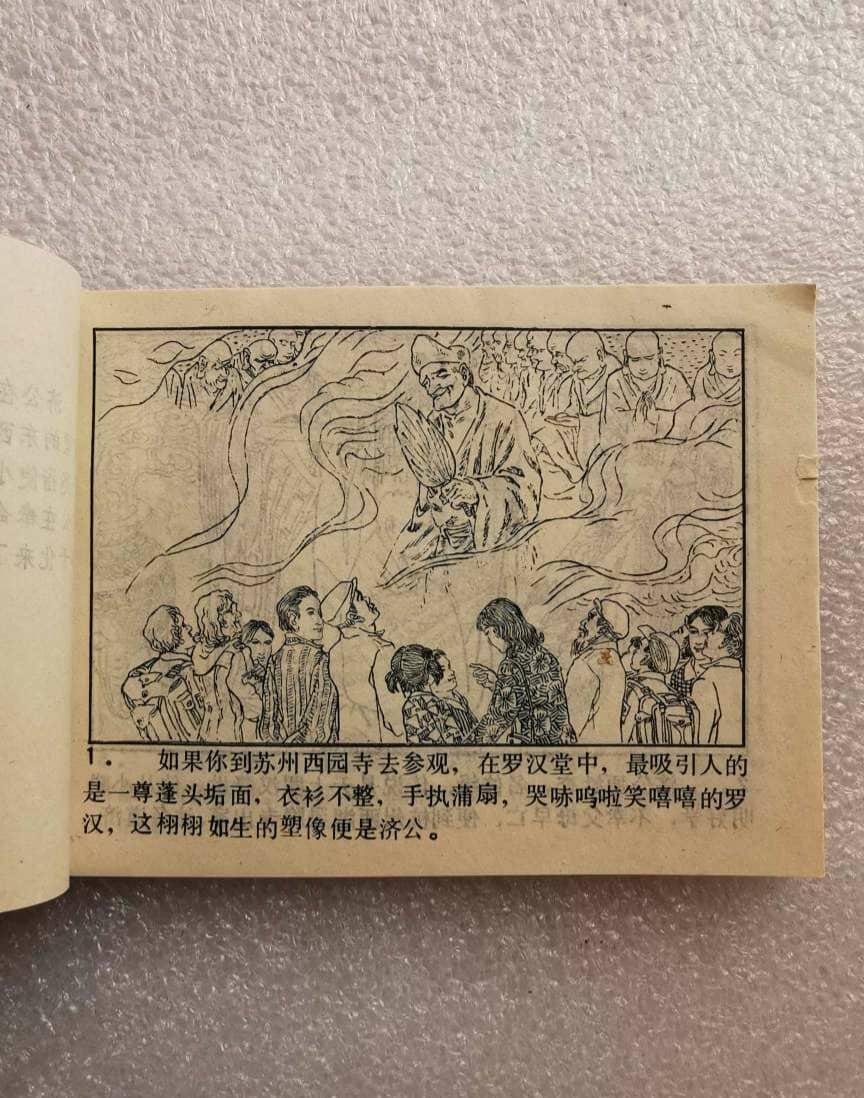 1. 如果你到苏州西园寺去参观，在罗汉堂中，最吸引人的
是一尊蓬头垢面，衣衫不整，手执蒲扇，哭哧呜啦笑嘻嘻的罗
汉，这栩栩如生的塑像便是济公。